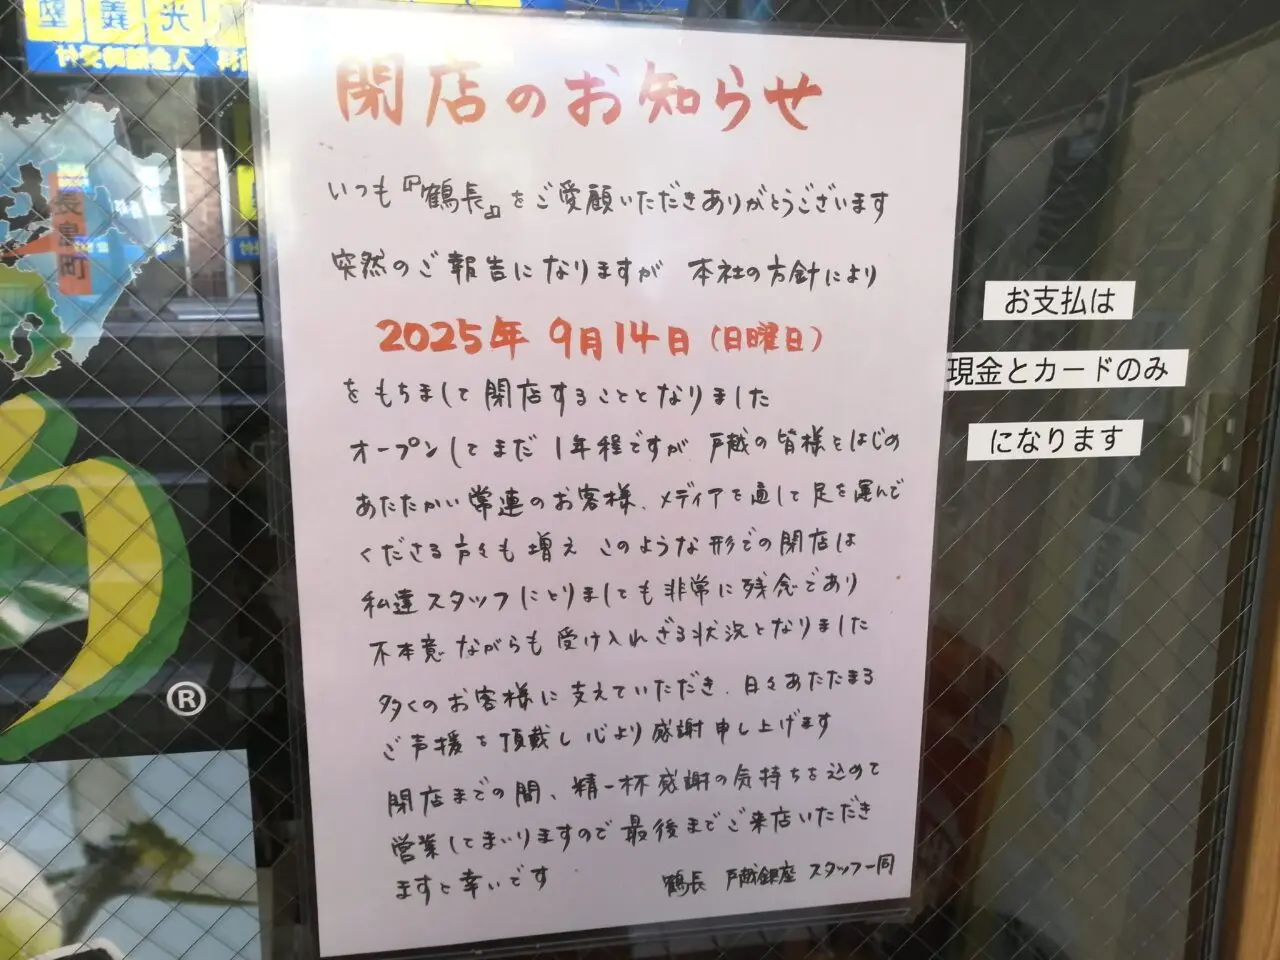 閉店のお知らせ
いつも『鶴長』をご愛顧いただきありがとうございます
突然のご報告になりますが 本社の方針により
2025年 9月14日（日曜日）
をもちまして閉店することとなりました
オープンしてまだ 1年程ですが 戸越の皆様をはじめ
あたたかい常連のお客様、メディアを通して足を運んで
くださる方々も増え このような形での閉店は
私達スタッフにとりましても非常に残念であり
不本意ながらも受け入れざる状況となりました
多くのお客様に支えていただき、日々あたたまる
ご声援を頂戴し心より感謝申し上げます
閉店までの間、精一杯感謝の気持ちを込めて
営業してまいりますので最後までご来店いただき
ますと幸いです
鶴長 戸越銀座 スタッフ一同
お支払は
現金とカードのみ
になります
長島町
®